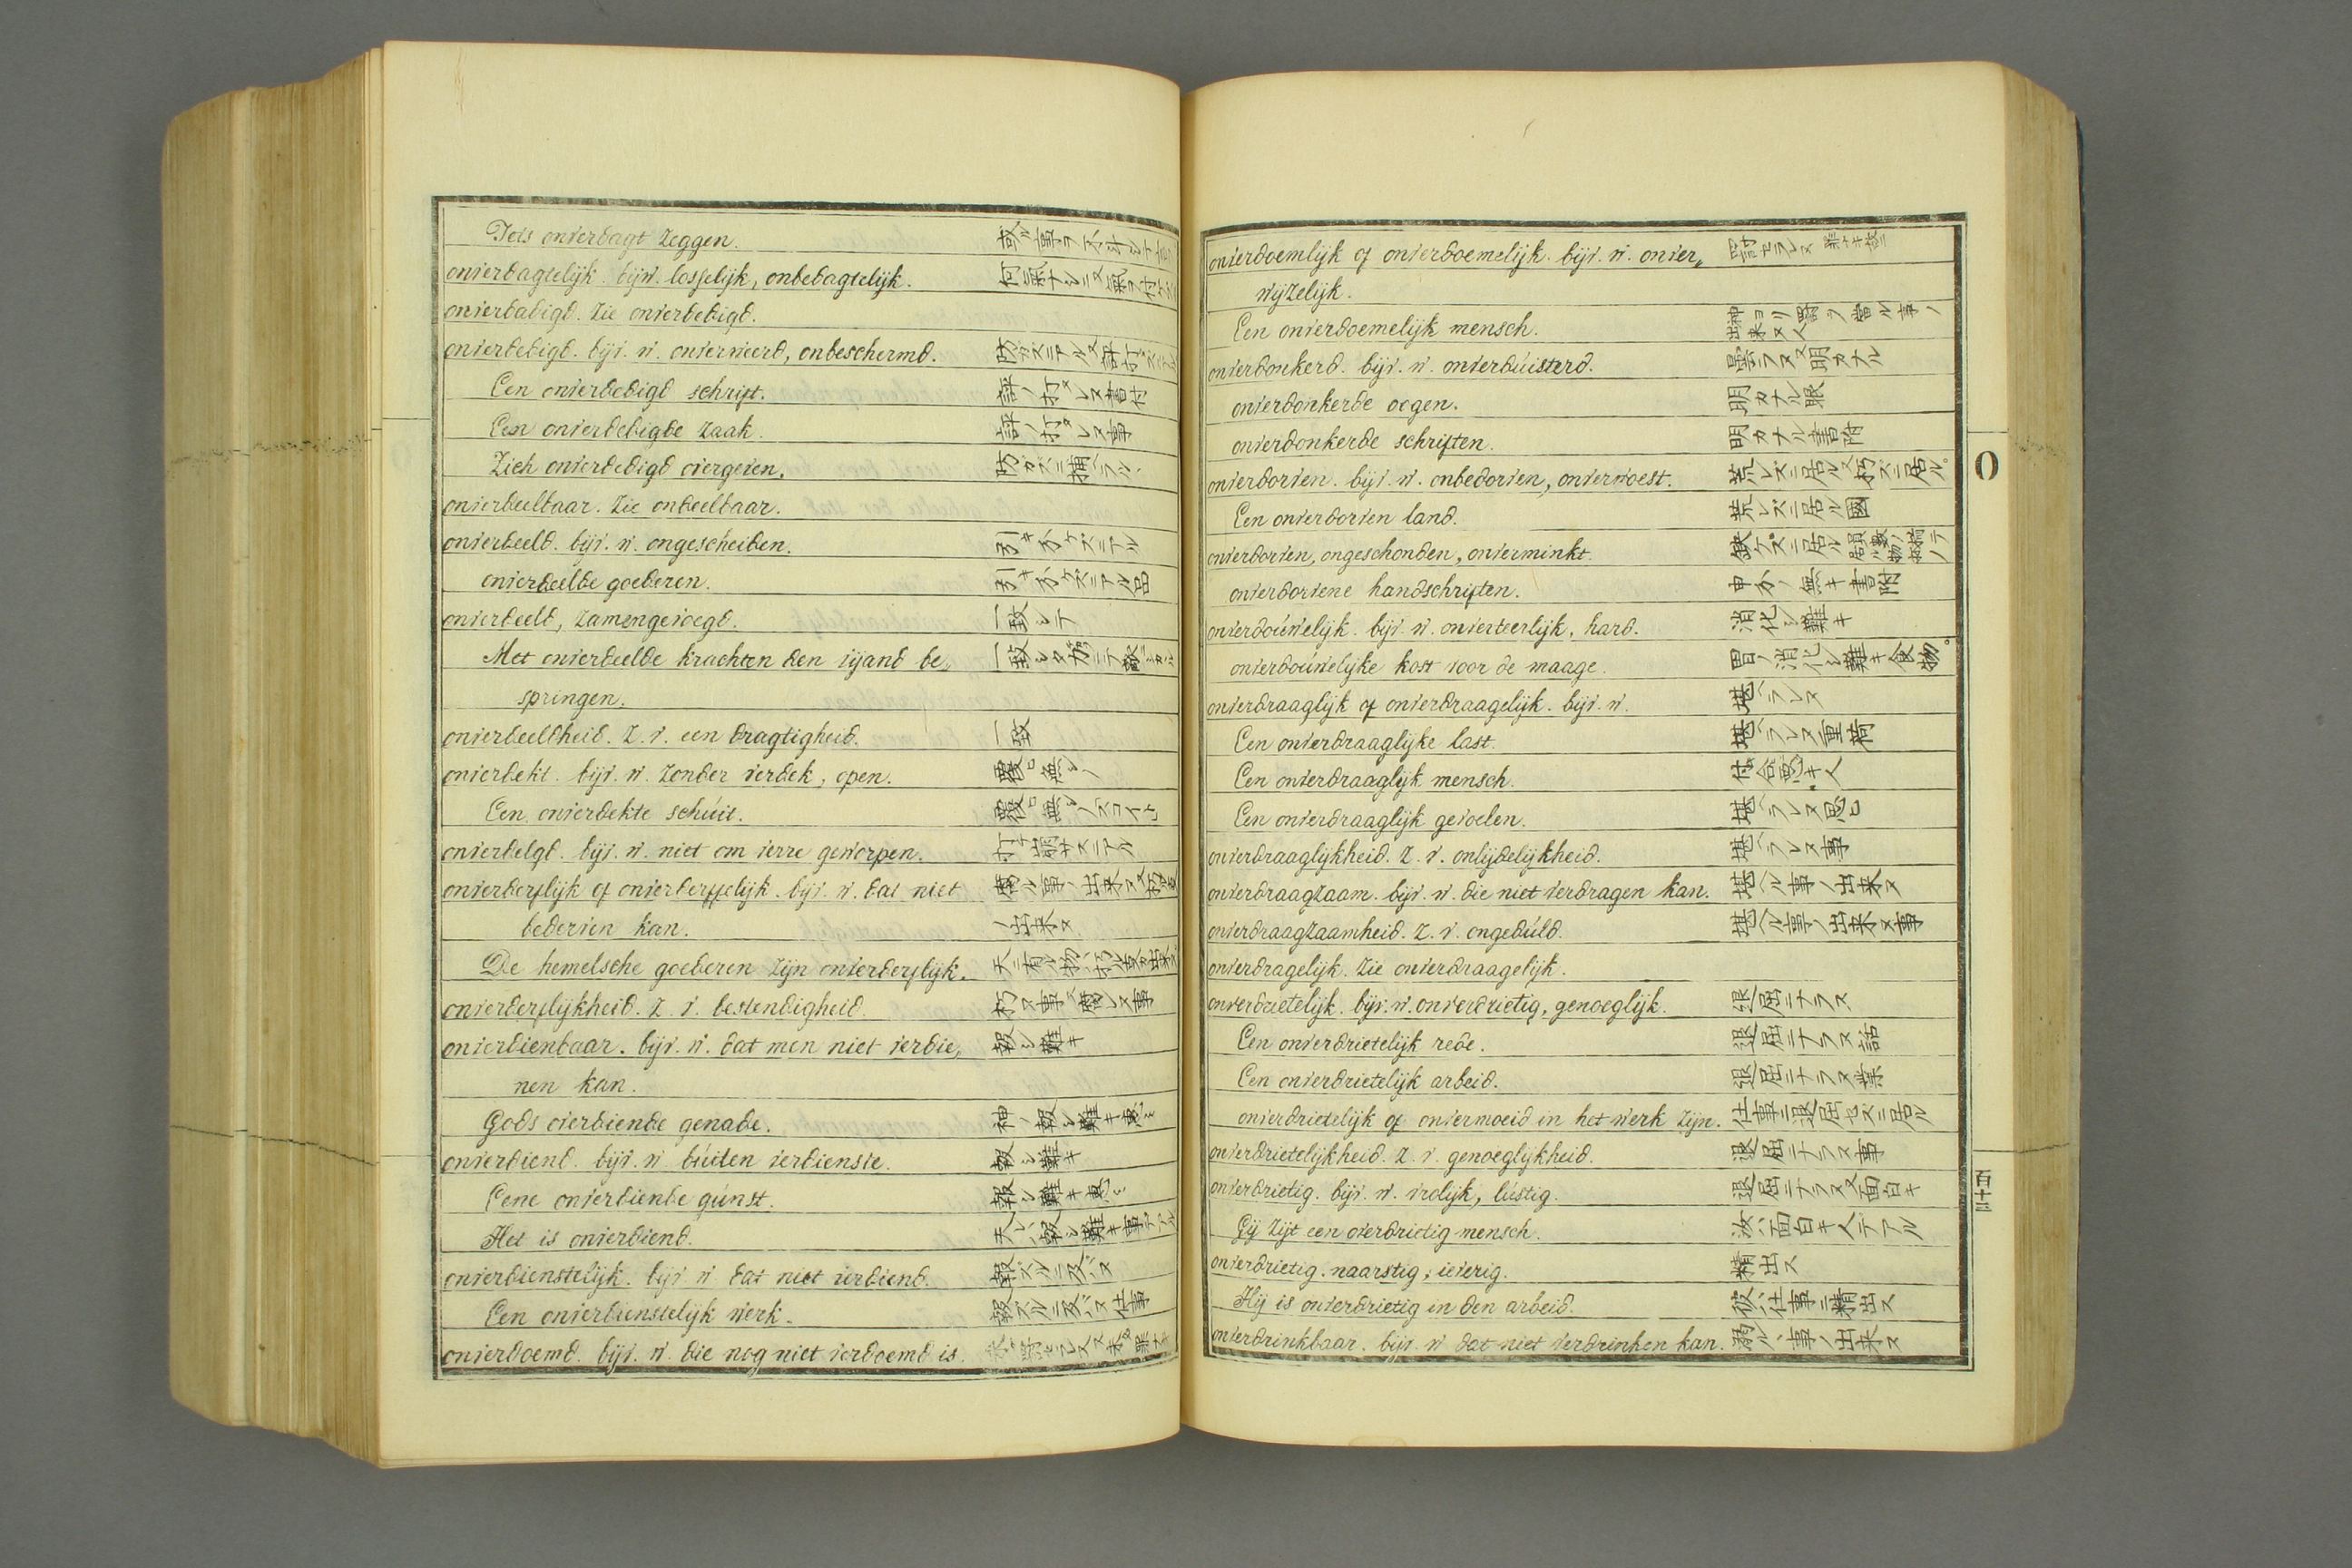 Iets onverdagt zeggen.
onverdagtelijk. bijw. losselijk, onbebagtelijk.
onverdadigd. Zie onverdedigd.
onverdedigd. bijv. w. onverweerd, onbeschermd.
Een onverdedigd schrift. 評ノ打タレヌ書付
Een onverdedigde zaak. 評ノ打タレヌ事
Zich onverdedigd overgeven.
onverdeelbaar. Zie ondeelbaar.
onverdeeld. bijv. w. ongescheiden. 引キ分ケズニアル
onverdeelde goederen. 引キ分ケズニアル品
onverdeeld, zamengevoegd. 一致シテ
Met onverdeelde krachten den vijand be„
springen.
onverdeeldheid. z. v. een dragtigheid. 一致
onverdekt. bijv. w. zonder verdek, open. 覆ヒ無シノ
Een onverdekte schúit.
onverdelgd. bijv. w. niet om verre geworpen.
onverderflijk of onverderffelijk. bijv. w. dat niet
bederven kan. ノ出来ヌ
De hemelsche goederen zijn onverderflijk.
onverderflijkheid. z. v. bestendigheid. 朽ヌ事又廃レヌ事
onverdienbaar. bijv. w. dat men niet verdie„ 報シ難キ
nen kan.
Gods overdiende genade. 神ノ報シ難キ恵ミ
onverdiend. bijv. w búiten verdienste. 報シ難キ
Eene onverdiende gúnst. 報シ難キ恵ミ
Het is onverdiend.
onverdienstelijk. bijv. w dat niet verdiend. 報ズルニ及バヌ
Een onverdienstelijk werk. 報ズルニ及バヌ仕事
onverdoemd. bijv. w. die nog niet verdoemd is.
onverdoemlijk of onverdoemelijk. bijv. w. onver„
wijzelijk.
Een onverdoemelijk mensch. 神ヨリ罰ノ當ル事ノ出来ヌ人
onverdonkerd. bijv. w. onverdúisterd. 曇ラヌ又明カナル
onverdonkerde oogen. 明カナル眼
onverdonkerde schriften. 明カナル書附
onverdorven. bijv. w. onbedorven, onverwoest. 荒レズニ居ル又朽ズニ居ル。
Een onverdorven land. 荒レズニ居ル國
onverdorven, ongeschonden, onverminkt. 缺ケズニ居ル
onverdorvene handschriften. 申分ノ無キ書附
onverdoúwelijk. bijv. w. onverteerlijk, hard. 消化シ難キ
onverdoúwelijke kost voor de maage. 胃ノ消化シ難キ食物。
onverdraaglijk of onverdraagelijk. bijv. w. 堪ヘラレヌ
Een onverdraaglijke last. 堪ヘラレヌ重荷
Een onverdraaglijk mensch. 付合悪キ人
Een onverdraaglijk gevoelen. 堪ヘラレヌ思ヒ
onverdraaglijkheid. z. v. onlijdelijkheid. 堪ヘラレヌ事
onverdraagzaam. bijv. w. die niet verdragen kan. 堪ヘル事ノ出来ヌ
onverdraagzaamheid. z. v. ongedúld. 堪ヘル事ノ出来ヌ事
onverdragelijk. Zie onverdraagelijk.
onverdrietelijk. bijv. w. onverdrietig, genoeglijk. 退屈ニナラヌ
Een onverdrietelijk rede. 退屈ニナラヌ話
Een onverdrietelijk arbeid. 退屈ニナラヌ業
onverdrietelijk of onvermoeid in het werk zijn. 仕事ニ退屈セズニ居ル
onverdrietelijkheid. z. v. genoeglijkheid. 退屈ニナラヌ事
onverdrietig. bijv. w. vrolijk, lústig. 退屈ニナラヌ又面白キ
Gij zijt een overdrietig mensch. 汝ハ面白キ人デアル
onverdrietig. naarstig, ieverig. 精出ス
Hij is onverdrietig in den arbeid. 彼ハ仕事ニ精出ス
onverdrinkbaar. bijv. w dat niet verdrinken kan. 溺ルヽ事ノ出来ヌ
O
百十三